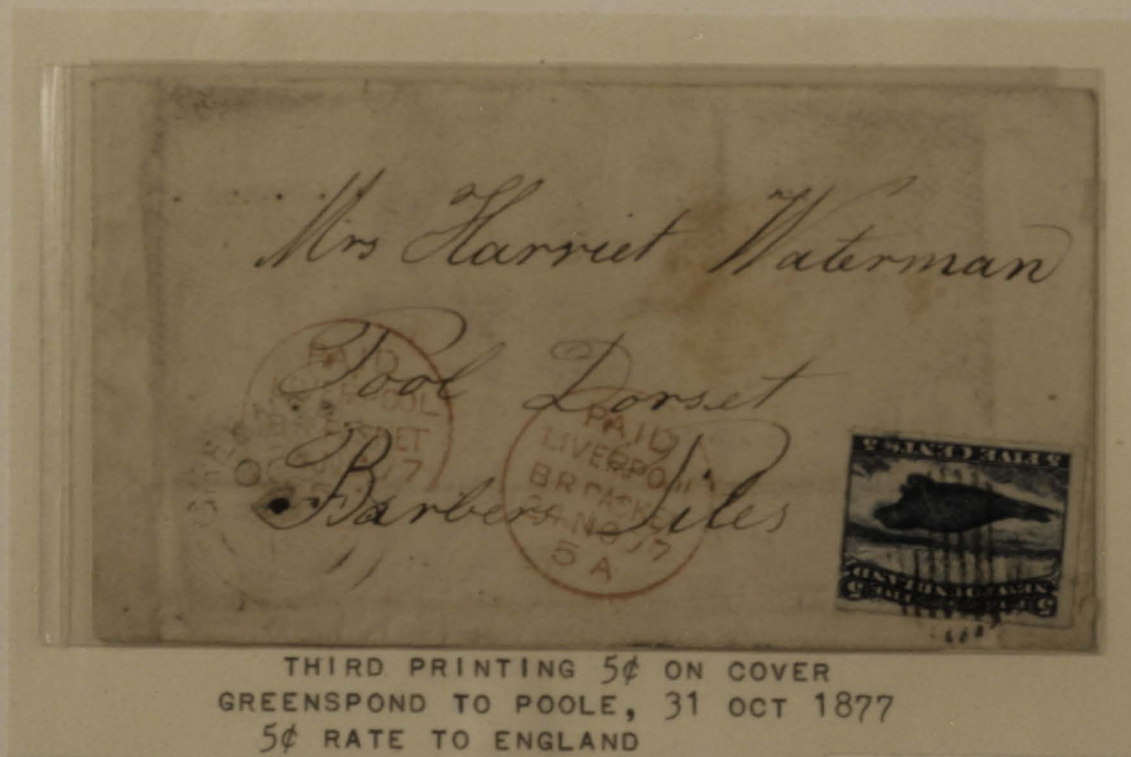 Mrs Harriet Waterman
Pool Dorset
Barbers Piles
PAID
LIVERPOOL
BR PACKET
17
PAID
LIVERPOOL
BR PACKET
NO 17
5 A
5 FIVE CENTS 5
NEWFOUNDLAND
5 FIVE 5
THIRD PRINTING 5¢ ON COVER
GREENSPOND TO POOLE, 31 OCT 1877
5¢ RATE TO ENGLAND